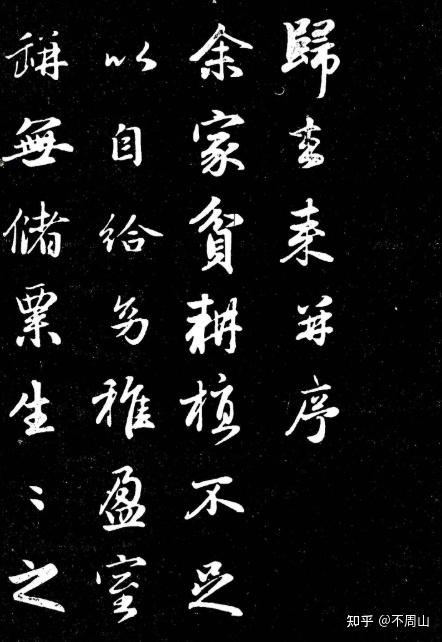 歸去来并序
余家貧耕植不足
以自給幼稚盈室
缾無儲粟生〻之
知乎 @不周山